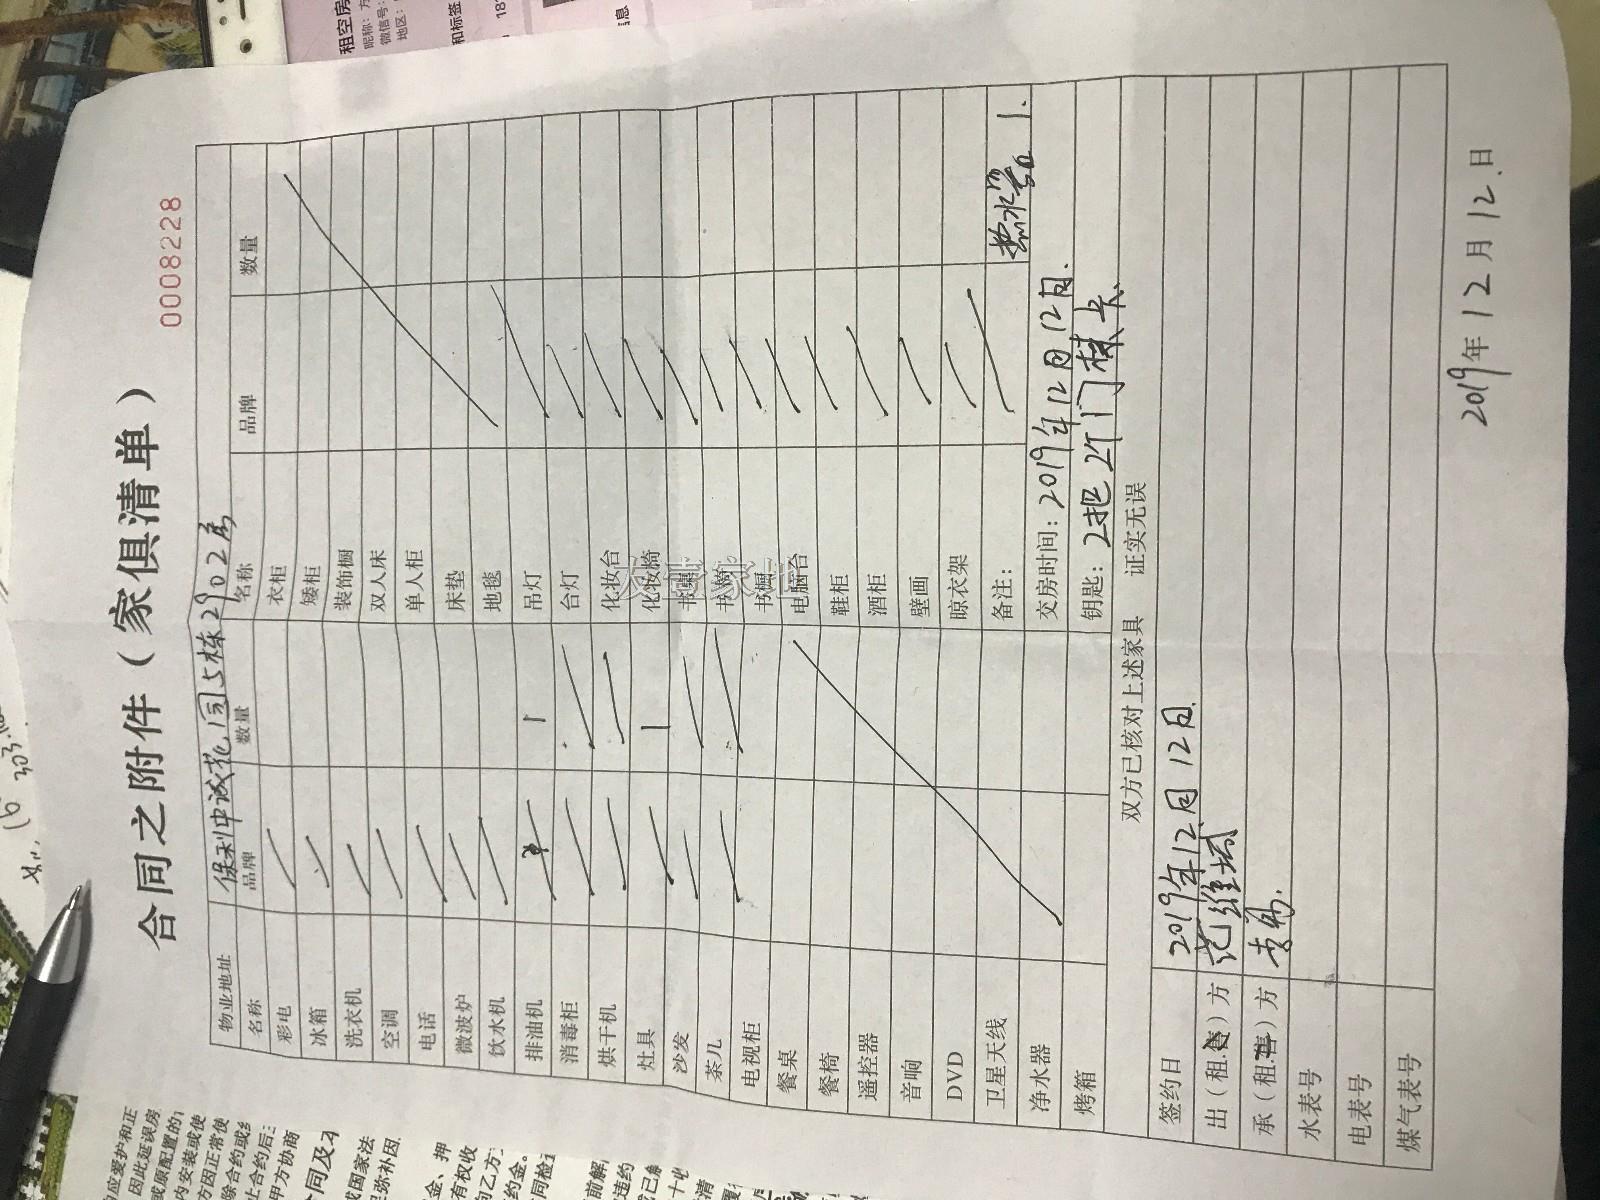 0008228
合同之附件（家俱清单）
物业地址 保利中诚花园5栋2902房
名称 品牌 数量 名称 品牌 数量
彩电 衣柜
冰箱 矮柜
洗衣机 装饰橱
空调 双人床
电话 单人柜
微波炉 床垫
饮水机 地毯
排油机 1 吊灯
消毒柜 台灯
烘干机 化妆台
灶具 1 化妆椅
沙发 书桌
茶几 书椅
电视柜 书橱
餐桌 电脑台
餐椅 鞋柜
遥控器 酒柜
音响 壁画
DVD 晾衣架
卫星天线 备注： 热水器 1.
净水器 交房时间：2019年12月12日.
烤箱 钥匙：2把 2个门禁卡.
双方已核对上述家具 证实无误
签约日 2019年12月12日.
出（租售）方
承（租售）方
水表号
电表号
煤气表号
2019年12月12.日
租空房
昵称：方
微信号：
地区：
和标签
友喜家庄